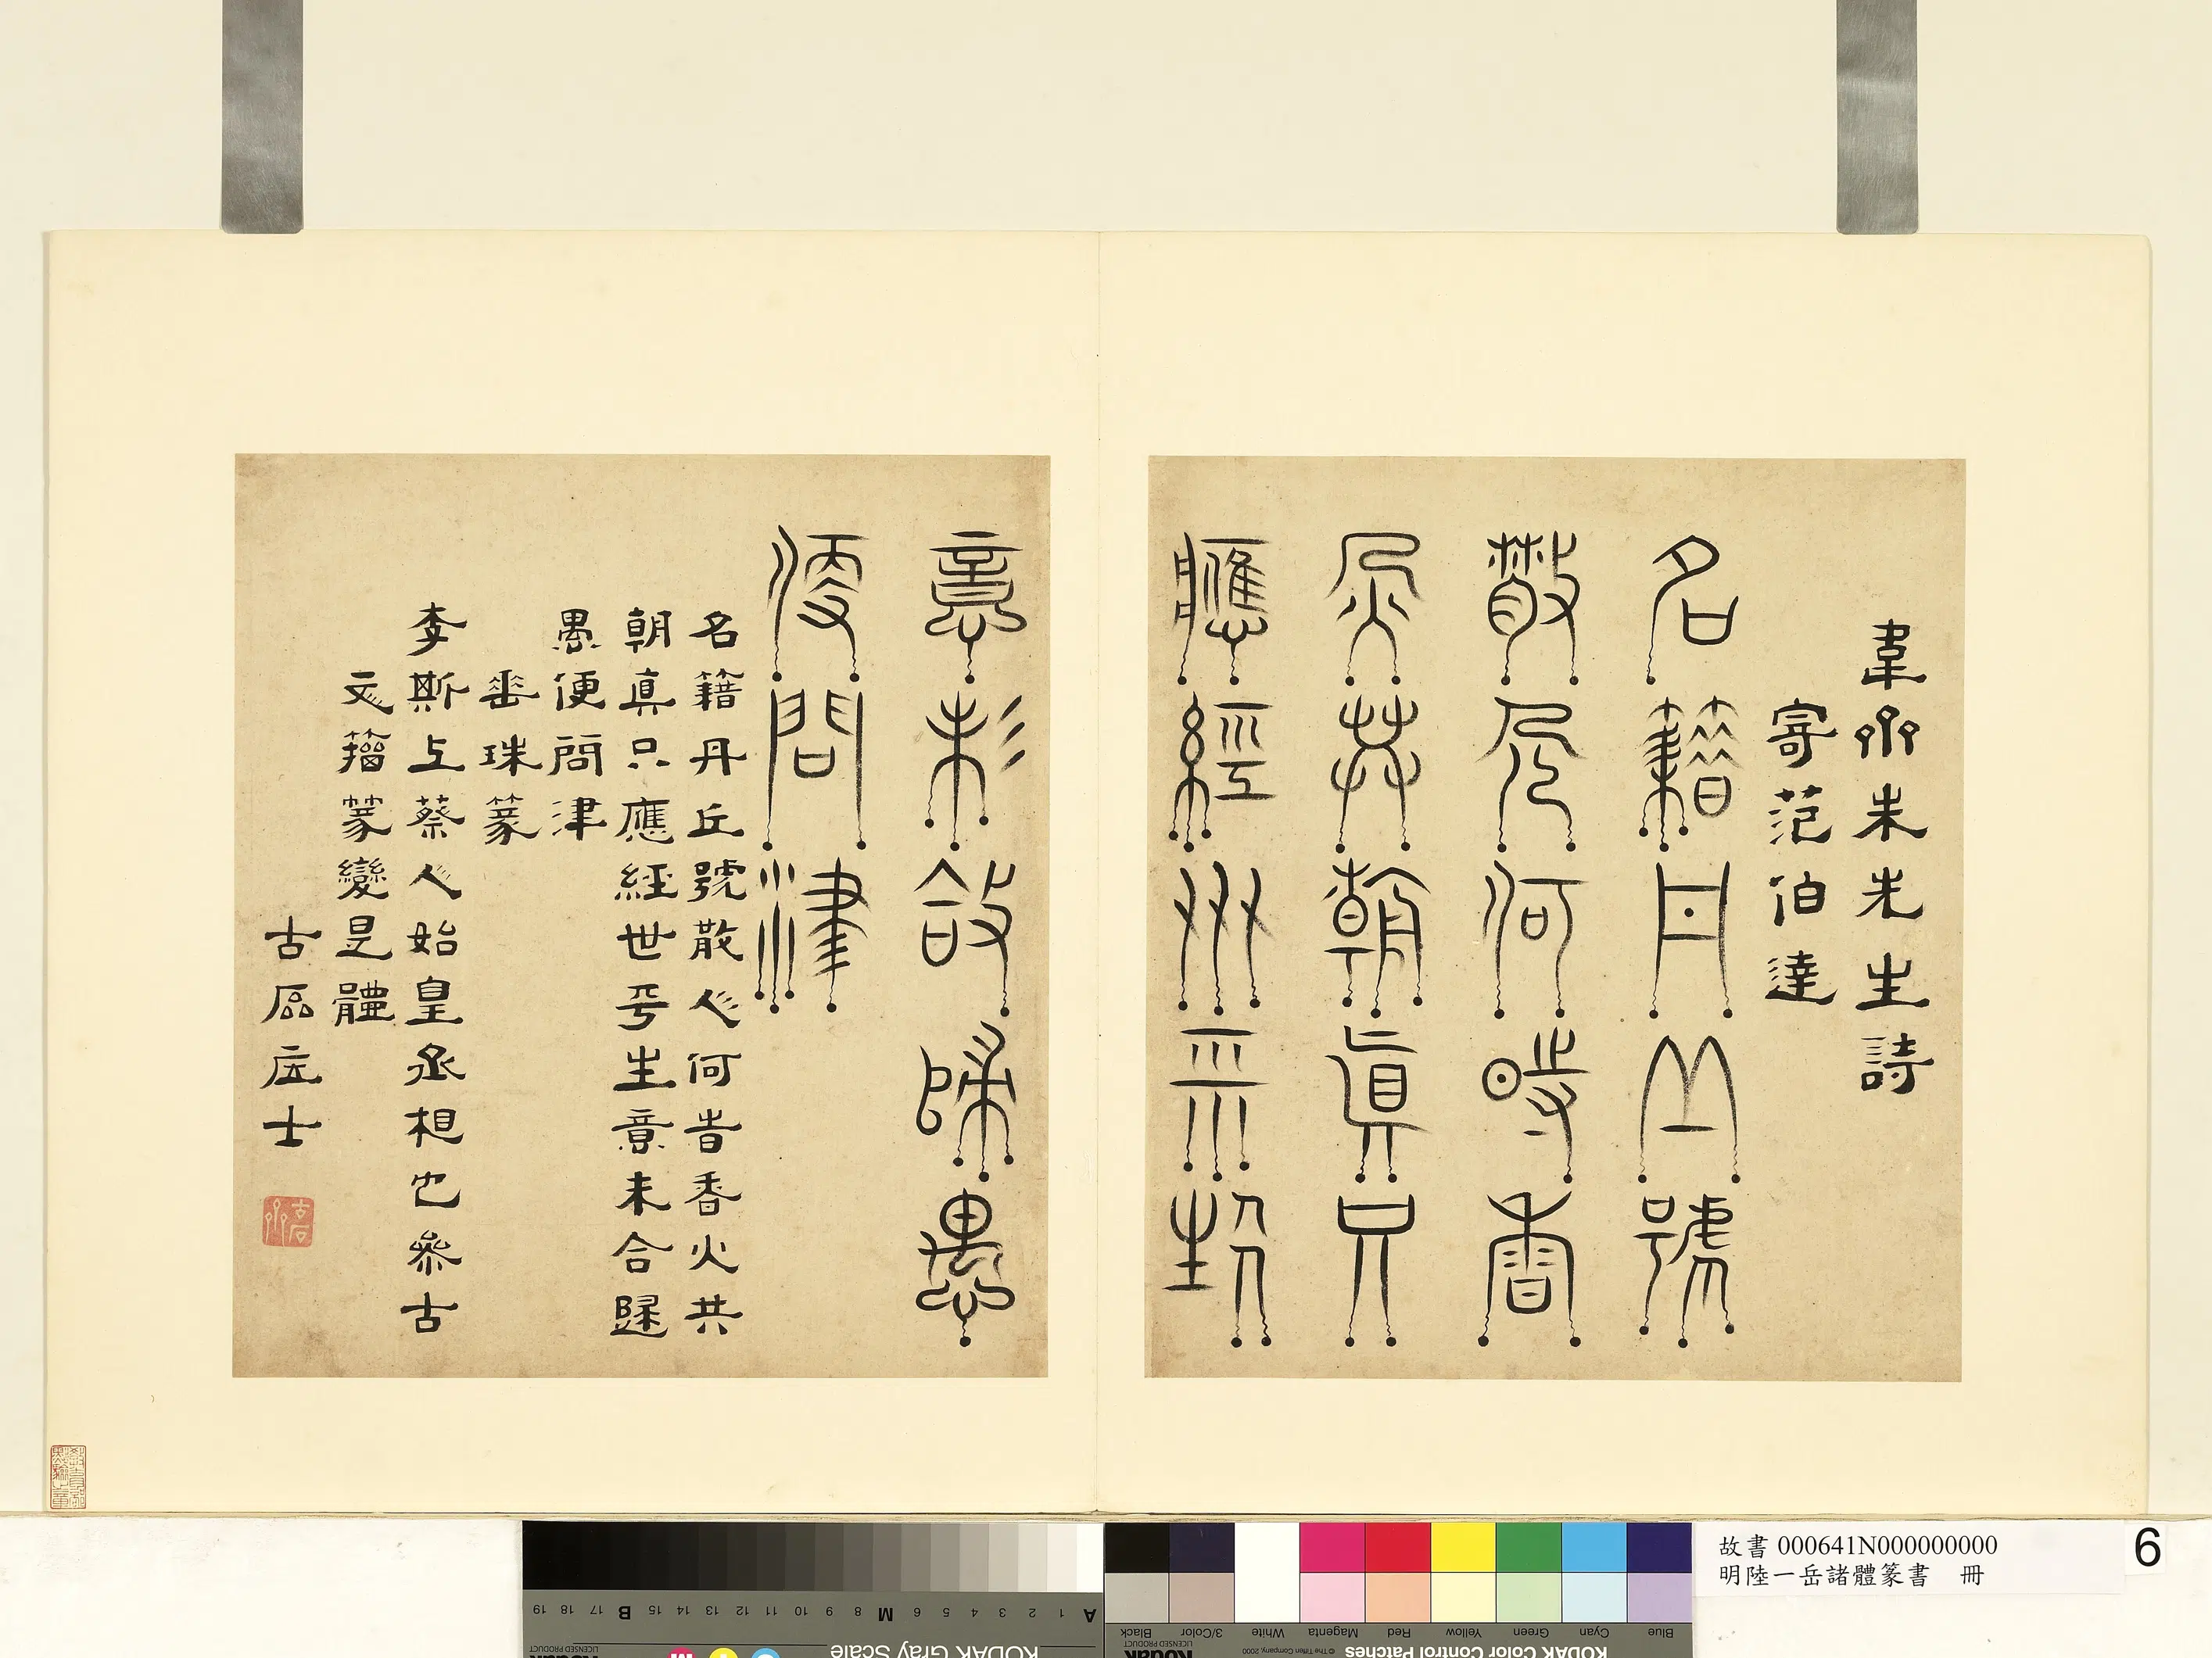 韋齋朱先生詩
寄范伯達
名籍丹丘號
散人何時香
火共朝真只
應經世平生
意未合歸愚
便問津
名籍丹丘號散人何旹香火共
朝真只應経世平生意未合歸
愚便問津
垂珠篆
李斯上蔡人始皇丞相也參古
文籀篆變是體
古士
故書 000641N000000000
明陸一岳諸體篆書 冊
6
KODAK Gray Scale
A 1 2 3 4 5 6 M 8 9 10 11 12 13 14 15 B 17 18 19
KODAK Color Control Patches
Blue Cyan Green Yellow Red Magenta White 3/Color Black
© The Tiffen Company, 2000
Kodak
LICENSED PRODUCT